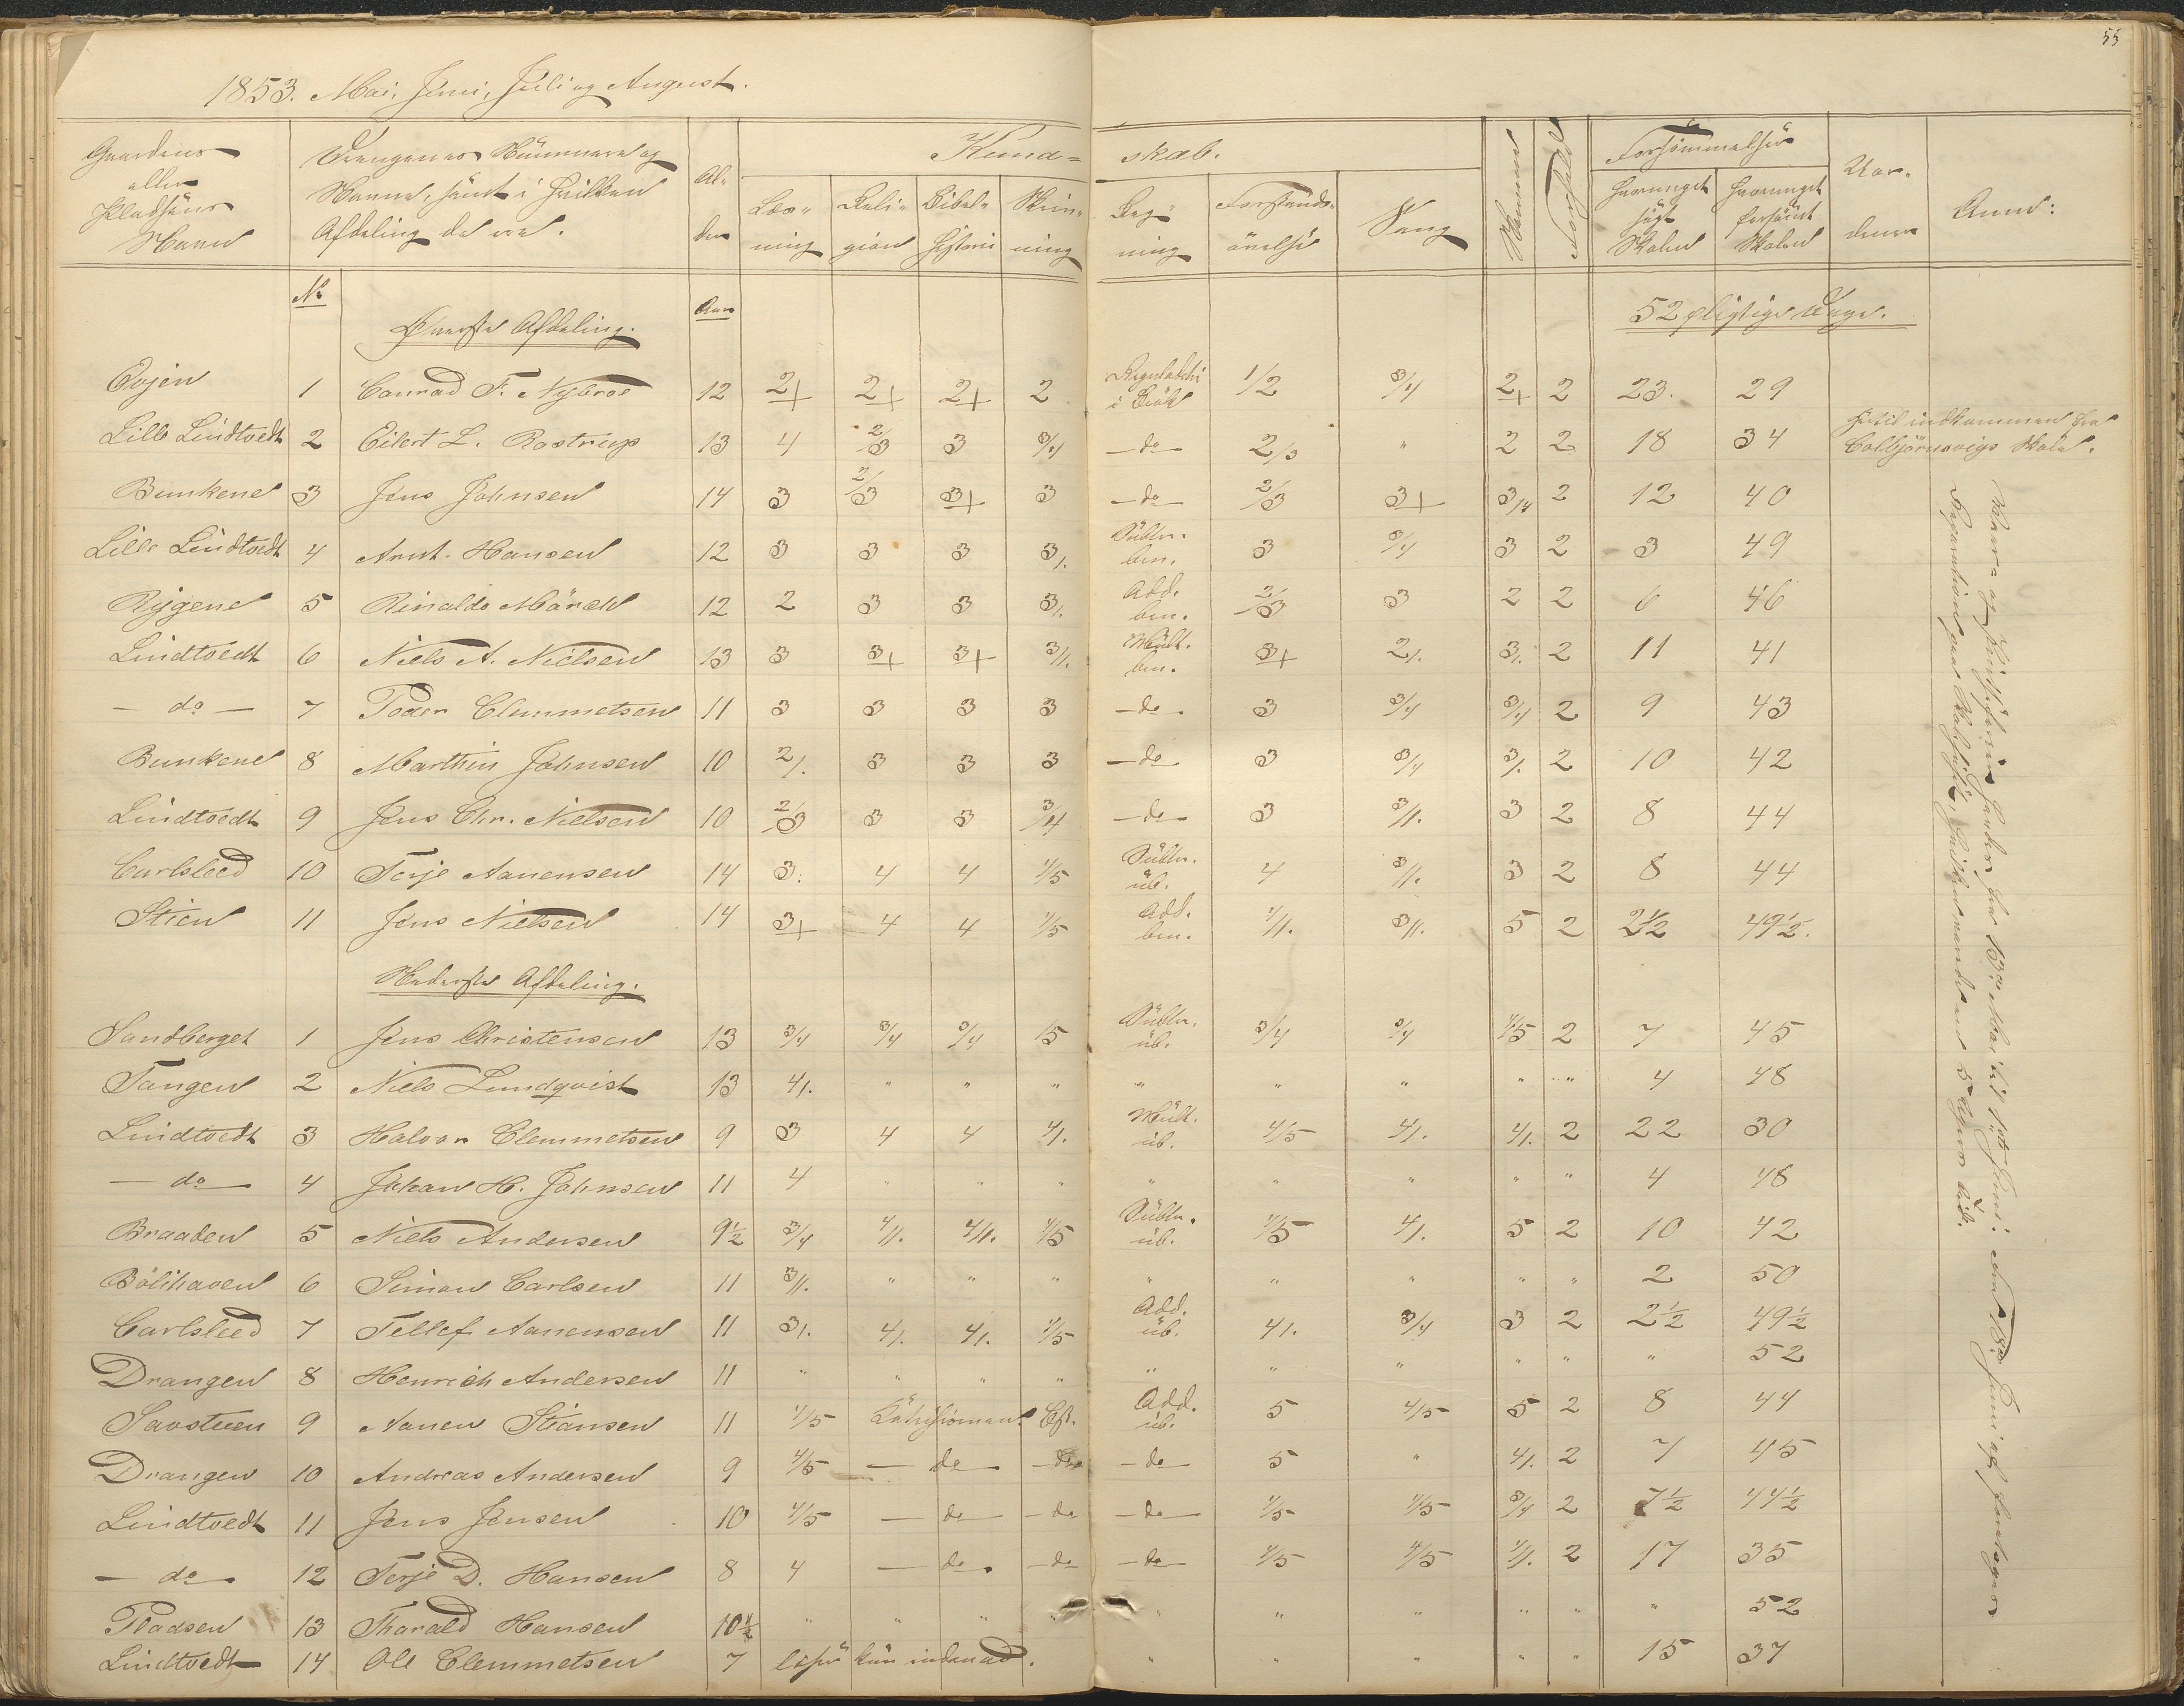 55
1853. Mai, Juni, Juli og August.
Gaardens eller Pladsens Navn | Drengenes Nummere og Navne, samt i hvilken Afdeling de ere. | Al- der | Kund- skab. | Nemme | Forhold | Forsömmelser | Vur- deren | Anm:
Læs- ning | Reli- gion | Bibel- historie | Skriv- ning | Reg- ning | Forstands- övelse | Sang | hvormeget sögt Skolen | hvormeget forsömt Skolen
No | Överste Afdeling. | Aar | 52 pligtige Dage.
Evjen 1 Conrad F. Nybroe 12 2+ 2+ 2+ 2 Reguladetri i Brök 1/2 3/4 2+ 2 23. 29
Lille Lindtvedt 2 Eilert L. Rostrup 13 4 2/3 3 3/4 - do - 2/3 " 2 2 18 34 hertil indkommen fra Colbjörnsvigs Skole.
Bunkene 3 Jens Johnsen 14 3 2/3 3+ 3 - do - 2/3 3+ 3/4 2 12 40
Lille Lindtvedt 4 Arnt Hansen 12 3 3 3 3/. Subtr. ben. 3 3/4 3 2 3 49
Rygene 5 Rinaldo Mörch 12 2 3 3 3/. Add. ben. 2/3 3 2 2 6 46
Lindtvedt 6 Niels A. Nielsen 13 3 3+ 3+ 3/. Mult. ben. 3+ 2/. 3/. 2 11 41
- do - 7 Peder Clemmetsen 11 3 3 3 3 - do 3 3/4 3/4 2 9 43
Bunkene 8 Marthin Johnsen 10 2/. 3 3 3 - do 3 3/4 3/. 2 10 42
Lindtvedt 9 Jens Chr. Nielsen 10 2/3 3 3 3/4 - do 3 3/. 3 2 8 44
Carlsleed 10 Terje Aanensen 14 3. 4 4 4/5 Subtr. üb. 4 3/. 3 2 8 44
Stien 11 Jens Nielsen 14 3+ 4 4 4/5 Add. ben. 4/. 3/. 5 2 2½ 49½.
Nederste Afdeling.
Sandberget 1 Jens Christensen 13 3/4 3/4 3/4 5 Subtr. üb. 3/4 3/4 4/5 2 7 45
Tangen 2 Niels Lundqvist 13 4/. " " " " " " " " 4 48
Lindtvedt 3 Halvor Clemmetsen 9 3 4 4 4/. Mult. üb. 4/5 4/. 4/. 2 22 30
- do 4 Johan H. Johnsen 11 4 " " " " " " " " 4 48
Braaten 5 Niels Andersen 9½ 3/4 4/. 4/. 4/5 Subtr. üb. 4/5 4/. 5 2 10 42
Bölihaven 6 Simon Carlsen 11 3/. " " " " " " " " 2 50
Carlsleed 7 Tellef Aanensen 11 3/. 4/. 4/. 4/5 Add. üb. 4/. 3/4 3 2 2½ 49½
Drangen 8 Henrich Andersen 11 " " " " " " " " " " 52
Savstuen 9 Aanen Stiansen 11 4/5 Katechismen. Bst. Add. üb. 5 4/5 5 2 8 44
Drangen 10 Andreas Andersen 9 4/5 - do - - do - do 5 " 4/. 2 7 45
Lindtvedt 11 Jens Jensen 10 4/5 - do - - do - do - 4/5 4/5 3/4 2 7½ 44½
- do 12 Terje D. Hansen 8 4 - do. - do - do - 4/5 4/5 4/. 2 17 35
Pladsen 13 Tharald Hansen 10½ " " " " " " " " " " 52
Lindtvedt 14 Ole Clemmetsen 7 læser kun indenad. " " " " " 15 37
Vaar- og Pintseferien havdes fra 13de Mai til 1ste Juni: den 18de Juni afholdtes
Reparation paa Skolehuset,